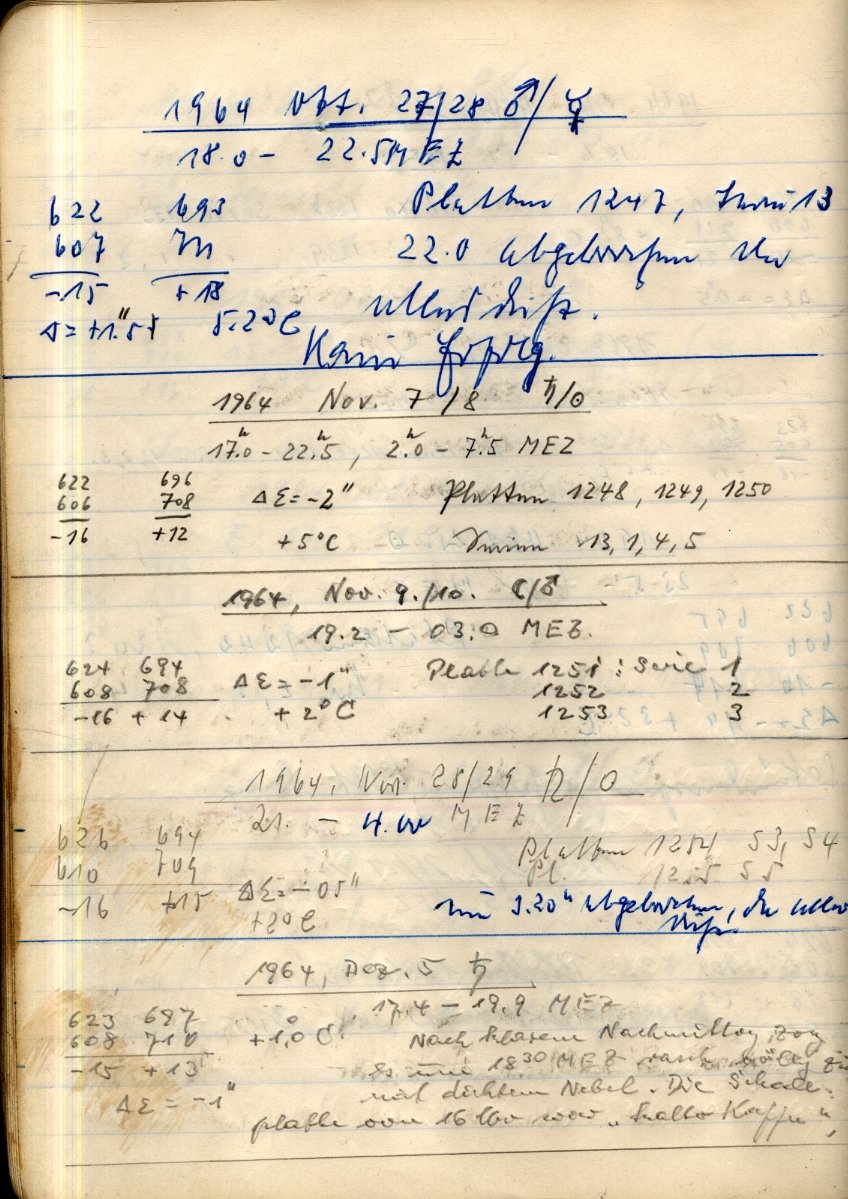 1964 Okt. 27/28 ♂/☿
18.0 - 22.5 MEZ
622 693 Platten 1247, Serie 13
607 711 22.0 abgebrochen da
-15 +18 alles trieft.
Δ = +1."5 5.2°C
Kein Erfolg.
1964 Nov. 7/8 ♄/☉
17.0ʰ - 22.5ʰ, 2.0 - 7.5ʰ MEZ
622 696
606 708 Δε = -2" Platten 1248, 1249, 1250
-16 +12 +5°C Serien 13, 1, 4, 5
1964, Nov. 9./10. ☾/♂
19.2 - 03.0 MEZ.
624 694 Δε = -1" Platte 1251 : Serie 1
608 708 1252 2
-16 +14 +2°C 1253 3
1964, Nov. 28/29 ♄/☉
21. - 4.00 MEZ
626 694 Platten 1254 S3, S4
610 709 Pl. 1255 S5
-16 +15 Δε = -05"
+2°C um 3.20ʰ abgebrochen, da alles
trieft.
1964, Dez. 5 ♄
17.4 - 19.9 MEZ
623 697
608 710 +1,0°C Nach klarem Nachmittag zog
-15 +13 es um 18³⁰ MEZ rasch völlig zu
Δε = -1" mit dichtem Nebel. Die
platte von 16 Uhr war „kalter Kaffee",